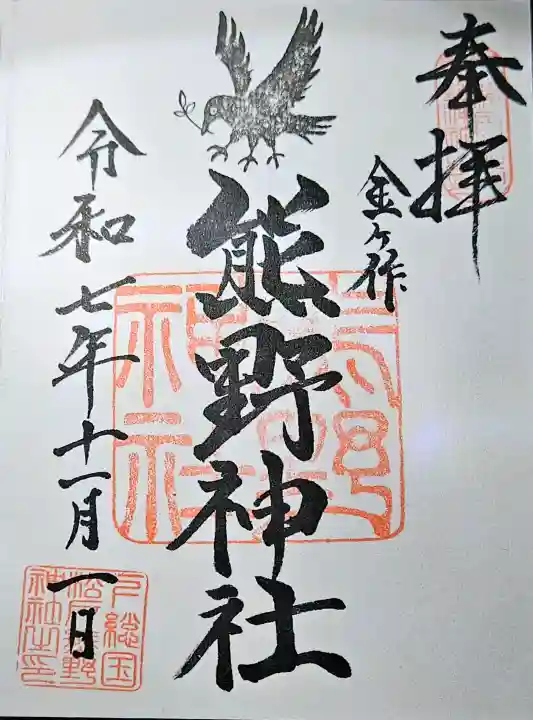 奉拝
金ヶ作
熊野神社
令和七年十一月一日